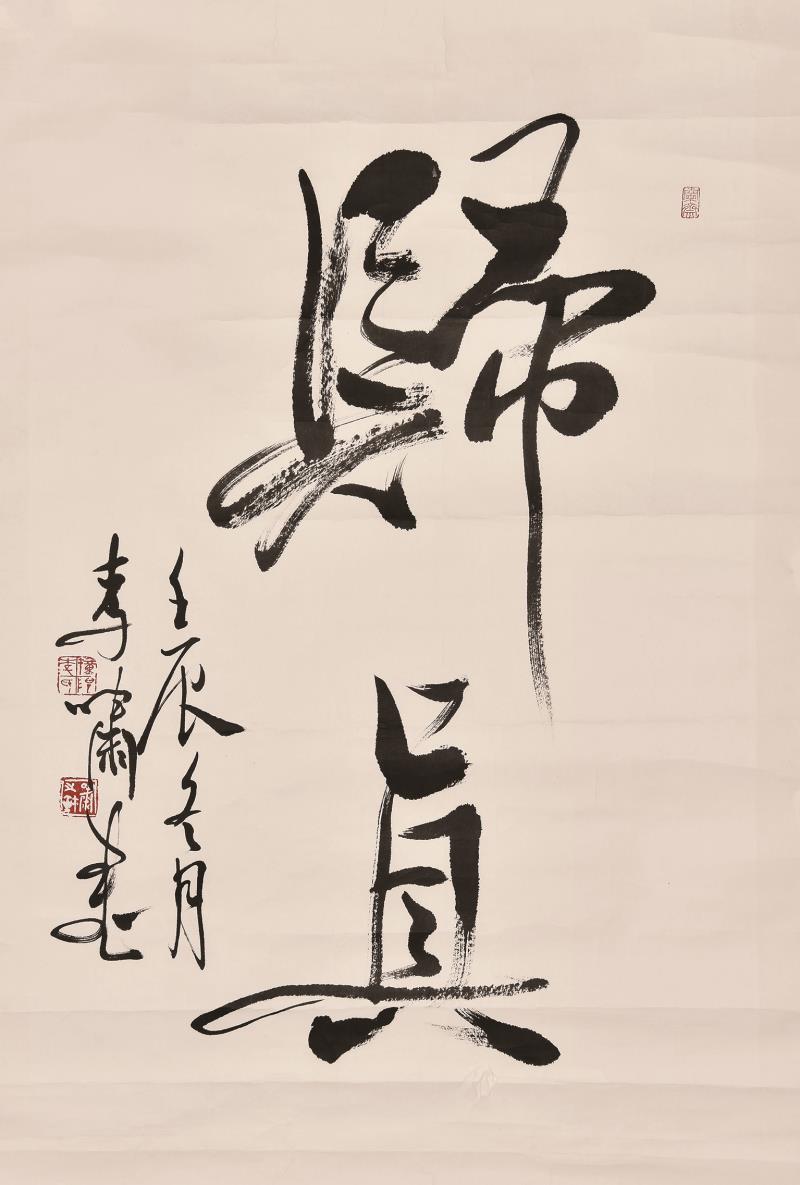 歸真
壬辰冬月
李嘯書